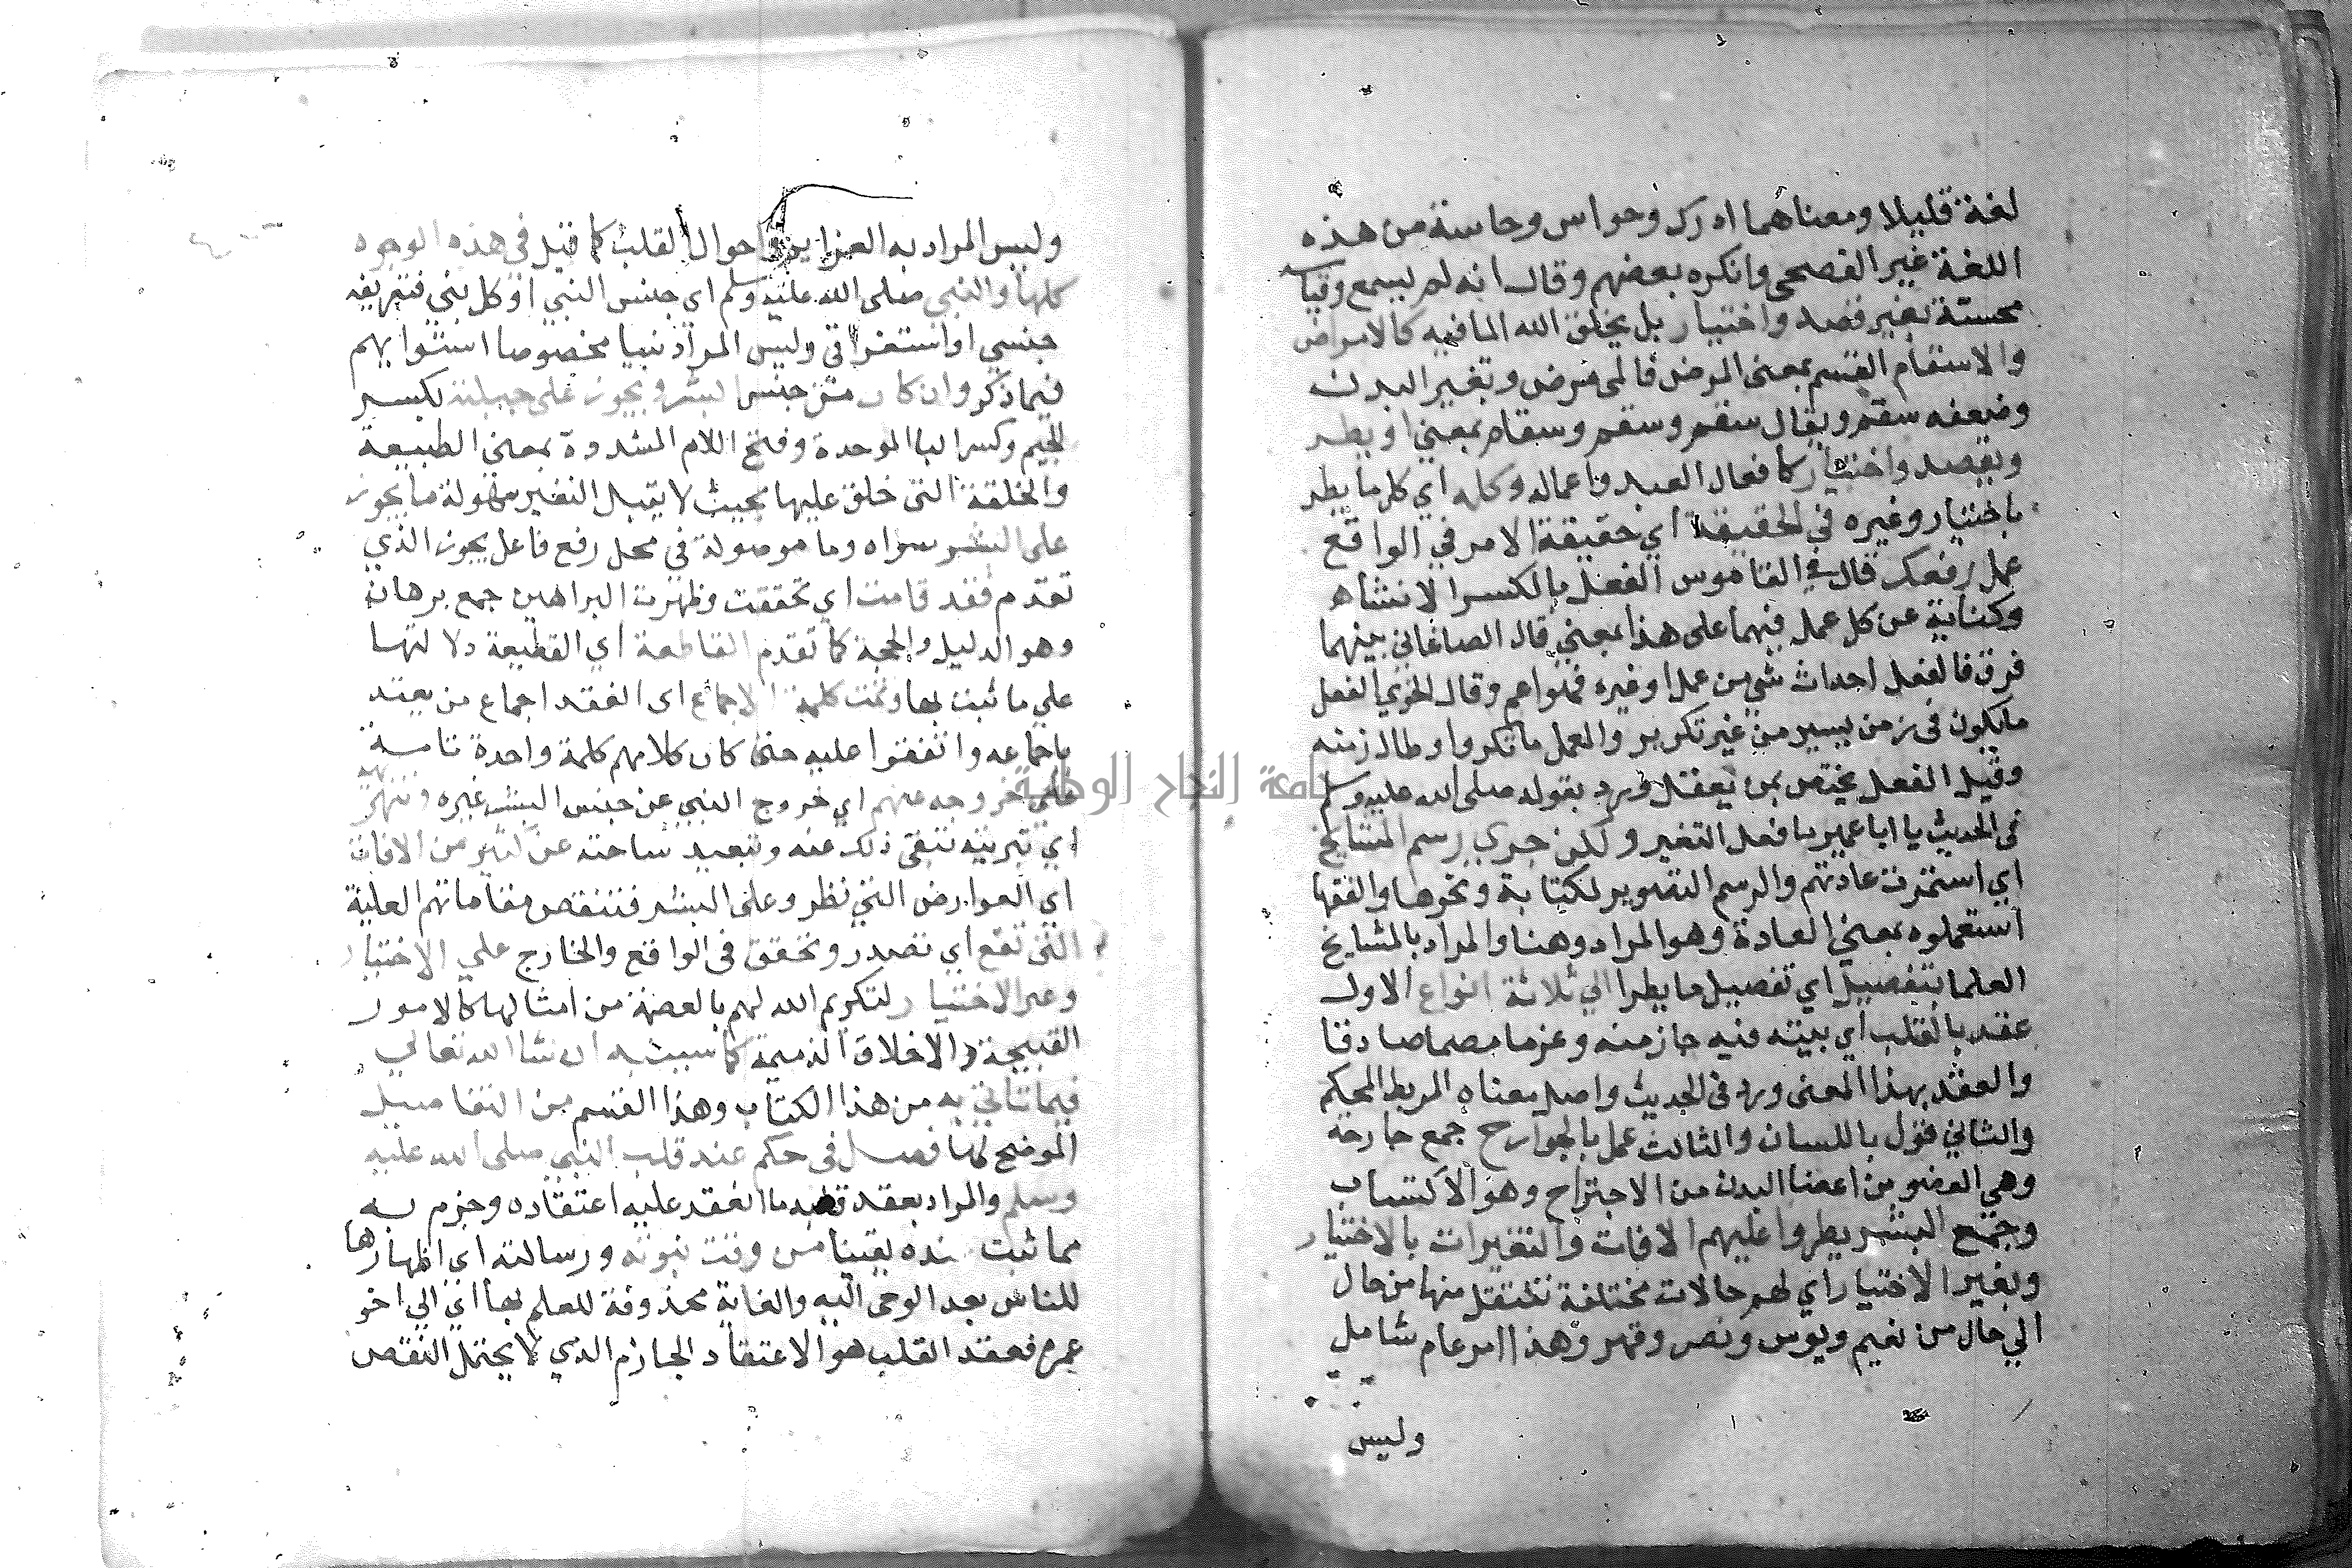 لغة قليلا ومعناهما ادرك وحواس وحاسة من هذه
اللغة غير الفصحى وانكره بعضهم وقال انه لم يسمع وقياسه
محسة بغير قصد واختيار بل بخلق الله لما فيه كالامراض
والاسقام القسم بمعنى المرض فالمى مرض وتغير البدن
وضعفه سقم ويقال سقم وسقم وسقام بمعنى او يطر
وبقصد واختيار كافعال العبد واعماله وكله اي كل ما يطر
باختيار وغيره في الحقيقة اي حقيقة الامر في الواقع
عمل وفعل قال في القاموس الفعل بالكسر الانشاه
وكناية عن كل عمل فهما على هذا بمعنى قال الصاغاني بينهما
فرق فالفعل احداث شي من عمل او غيره فهو اعم وقال الخوي الفعل
ما يكون في زمن يسير من غير تكرير والعمل ما تكر او طال زمنه
وقيل الفعل يختص بمن يعقل ورد بقوله صلى الله عليه وسلم
في الحديث يا ابا عمير ما فعل النغير ولكن جرى رسم المشايخ
اي استمرت عادتهم والرسم التصوير لكتابة ونحوها والفقها
استعملوه بمعنى العادة وهو المراد وهنا والمراد بالمشايخ
العلما بتفصيل اي تفصيل ما يطرا الي ثلاثة انواع الاول
عقد بالقلب اي بيته فيه جاز منه وعزما مصماصا دقا
والعقد بهذا المعنى ورد في الحديث واصل معناه الربط المحكم
والثاني قول باللسان والثالث عمل بالجوارح جمع جارحة
وهي العضو من اعضا البدن من الاجتراح وهو الاكتساب
وجمع البشر يطروا عليهم الافات والتغيرات بالاختيار
وبغير الاختيار اي لهم حالات مختلفة تنتقل منها من حال
الي حال من نعيم وبوس ونصر وقهر وهذا امر عام شامل
وليس
وليس المراد به واحوال القلب كما قيل في هذه الوجوه
كلها والنبي صلى الله عليه وسلم اي جنس النبي او كل نبي فتعريفه
جنسي او استغراقي وليس المراد نبيا مخصوصا استوا بهم
فيما ذكر وان كان من جنس البشر ويجوز على جبلته بكسر
الجيم وكسر البا الموحدة وفتح اللام المشددة بمعنى الطبيعة
والخلقة التي خلق عليها بحيث لا يقبل التغير بسهولة ما يجوز
على البشر سواه وما موصولة في محل رفع فاعل يجوز الذي
تقدم فقد قامت اي تحققت وظهرت البراهين جمع برهان
وهو الدليل والحجة كما تقدم القاطعة اي القطيعة دلالتها
علي ما ثبت بها وتمت كلمة الاجماع اى العقد اجماع من يعتد
باجماعه واتفقوا عليه حتى كان كلامهم كلمة واحدة تامة
على خروجه عنهم اي خروج النبي عن جنس البشر غيره وتنزيهه
اي تبريته تنفى ذلك عنه وتبعيد ساحته عن كثير من الافات
اي العوارض التي تطر وعلى البشر فتنقص مقاماتهم العلية
التي تقع اي تصدر وتحقق في الواقع والخارج علي الاختيار
وغير الاختيار لتكريم الله لهم بالعصمة من امثالها كالامور
القبيحة والاخلاق الذميمة كما سيبينه ان شا الله تعالي
فيما تاتي به من هذا الكتاب وهذا القسم من التفاصيل
الموضح لها فصل في حكم عقد قلب النبي صلى الله عليه
وسلم والمراد بعقد قلبه ما انعقد عليه اعتقاده وجزم به
مما ثبت عنده يقينا من وقت نبوته ورسالته اي اظهارها
للناس بعد الوحى اليه والغاية محذوفة للعلم بها اي الي اخر
عمره فعقد القلب هو الاعتقاد الجازم الذي لا يحتمل النقص
جامعة النجاح الوطنية